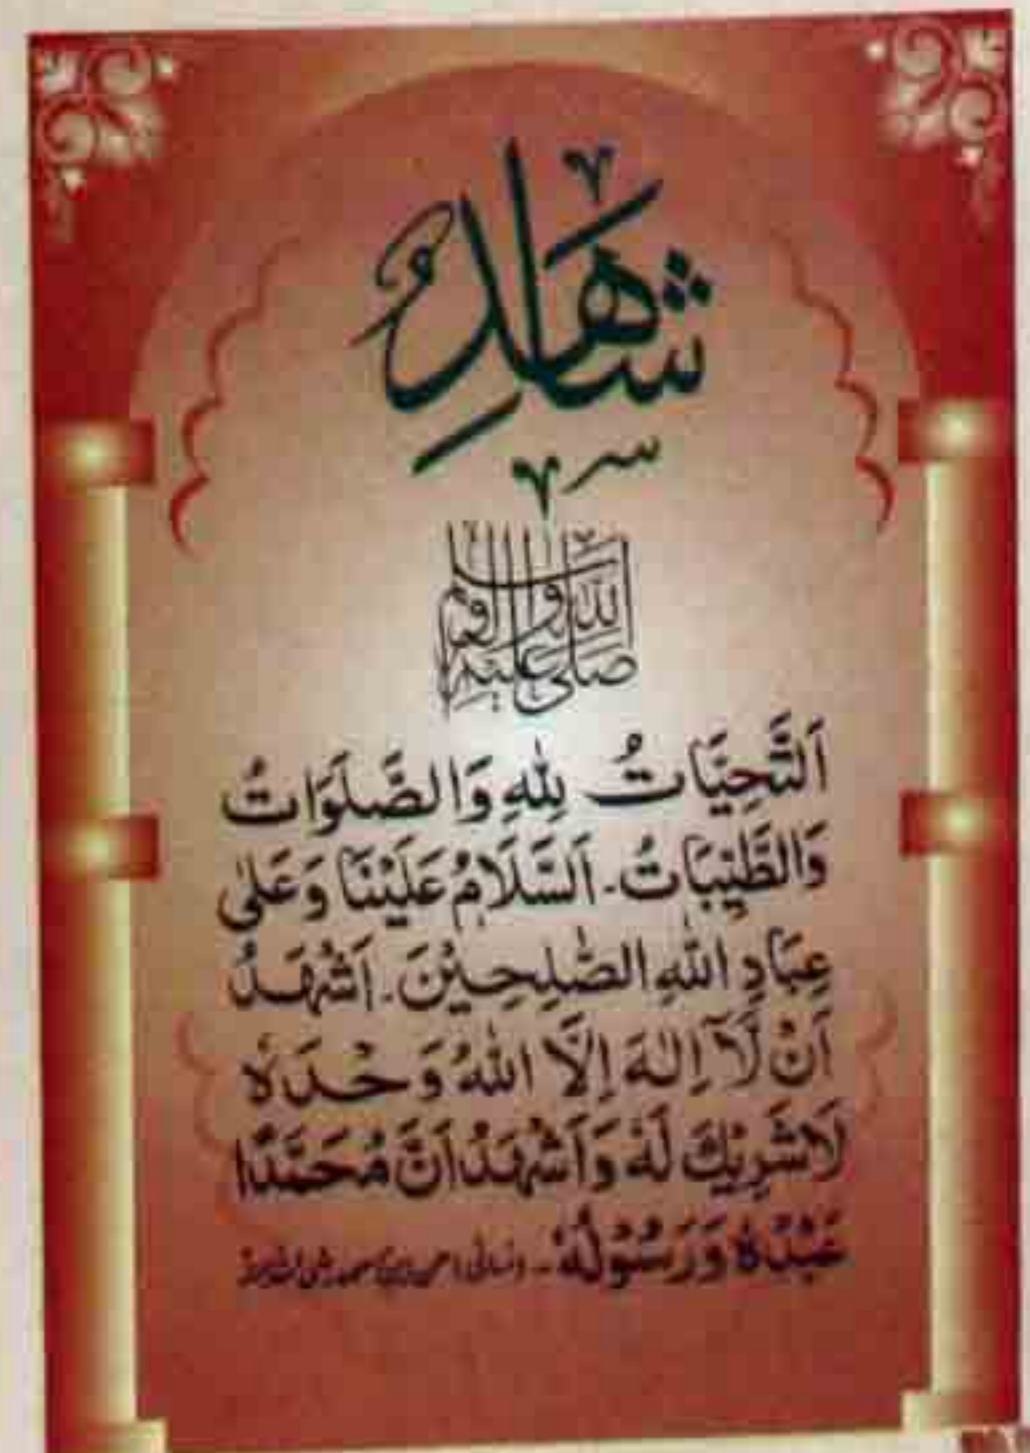 شَاهِدٌ
صلى الله عليه واله وسلم
اَلتَّحِيَّاتُ لِلّٰهِ وَالصَّلَوَاتُ
وَالطَّيِّبَاتُ۔ اَلسَّلَامُ عَلَيْنَا وَعَلٰى
عِبَادِ اللّٰهِ الصّٰلِحِيْنَ۔ اَشْهَدُ
اَنْ لَّآ اِلٰهَ اِلَّا اللّٰهُ وَحْدَهٗ
لَاشَرِيْكَ لَهٗ وَاَشْهَدُ اَنَّ مُحَمَّدًا
عَبْدُهٗ وَرَسُوْلُهٗ۔